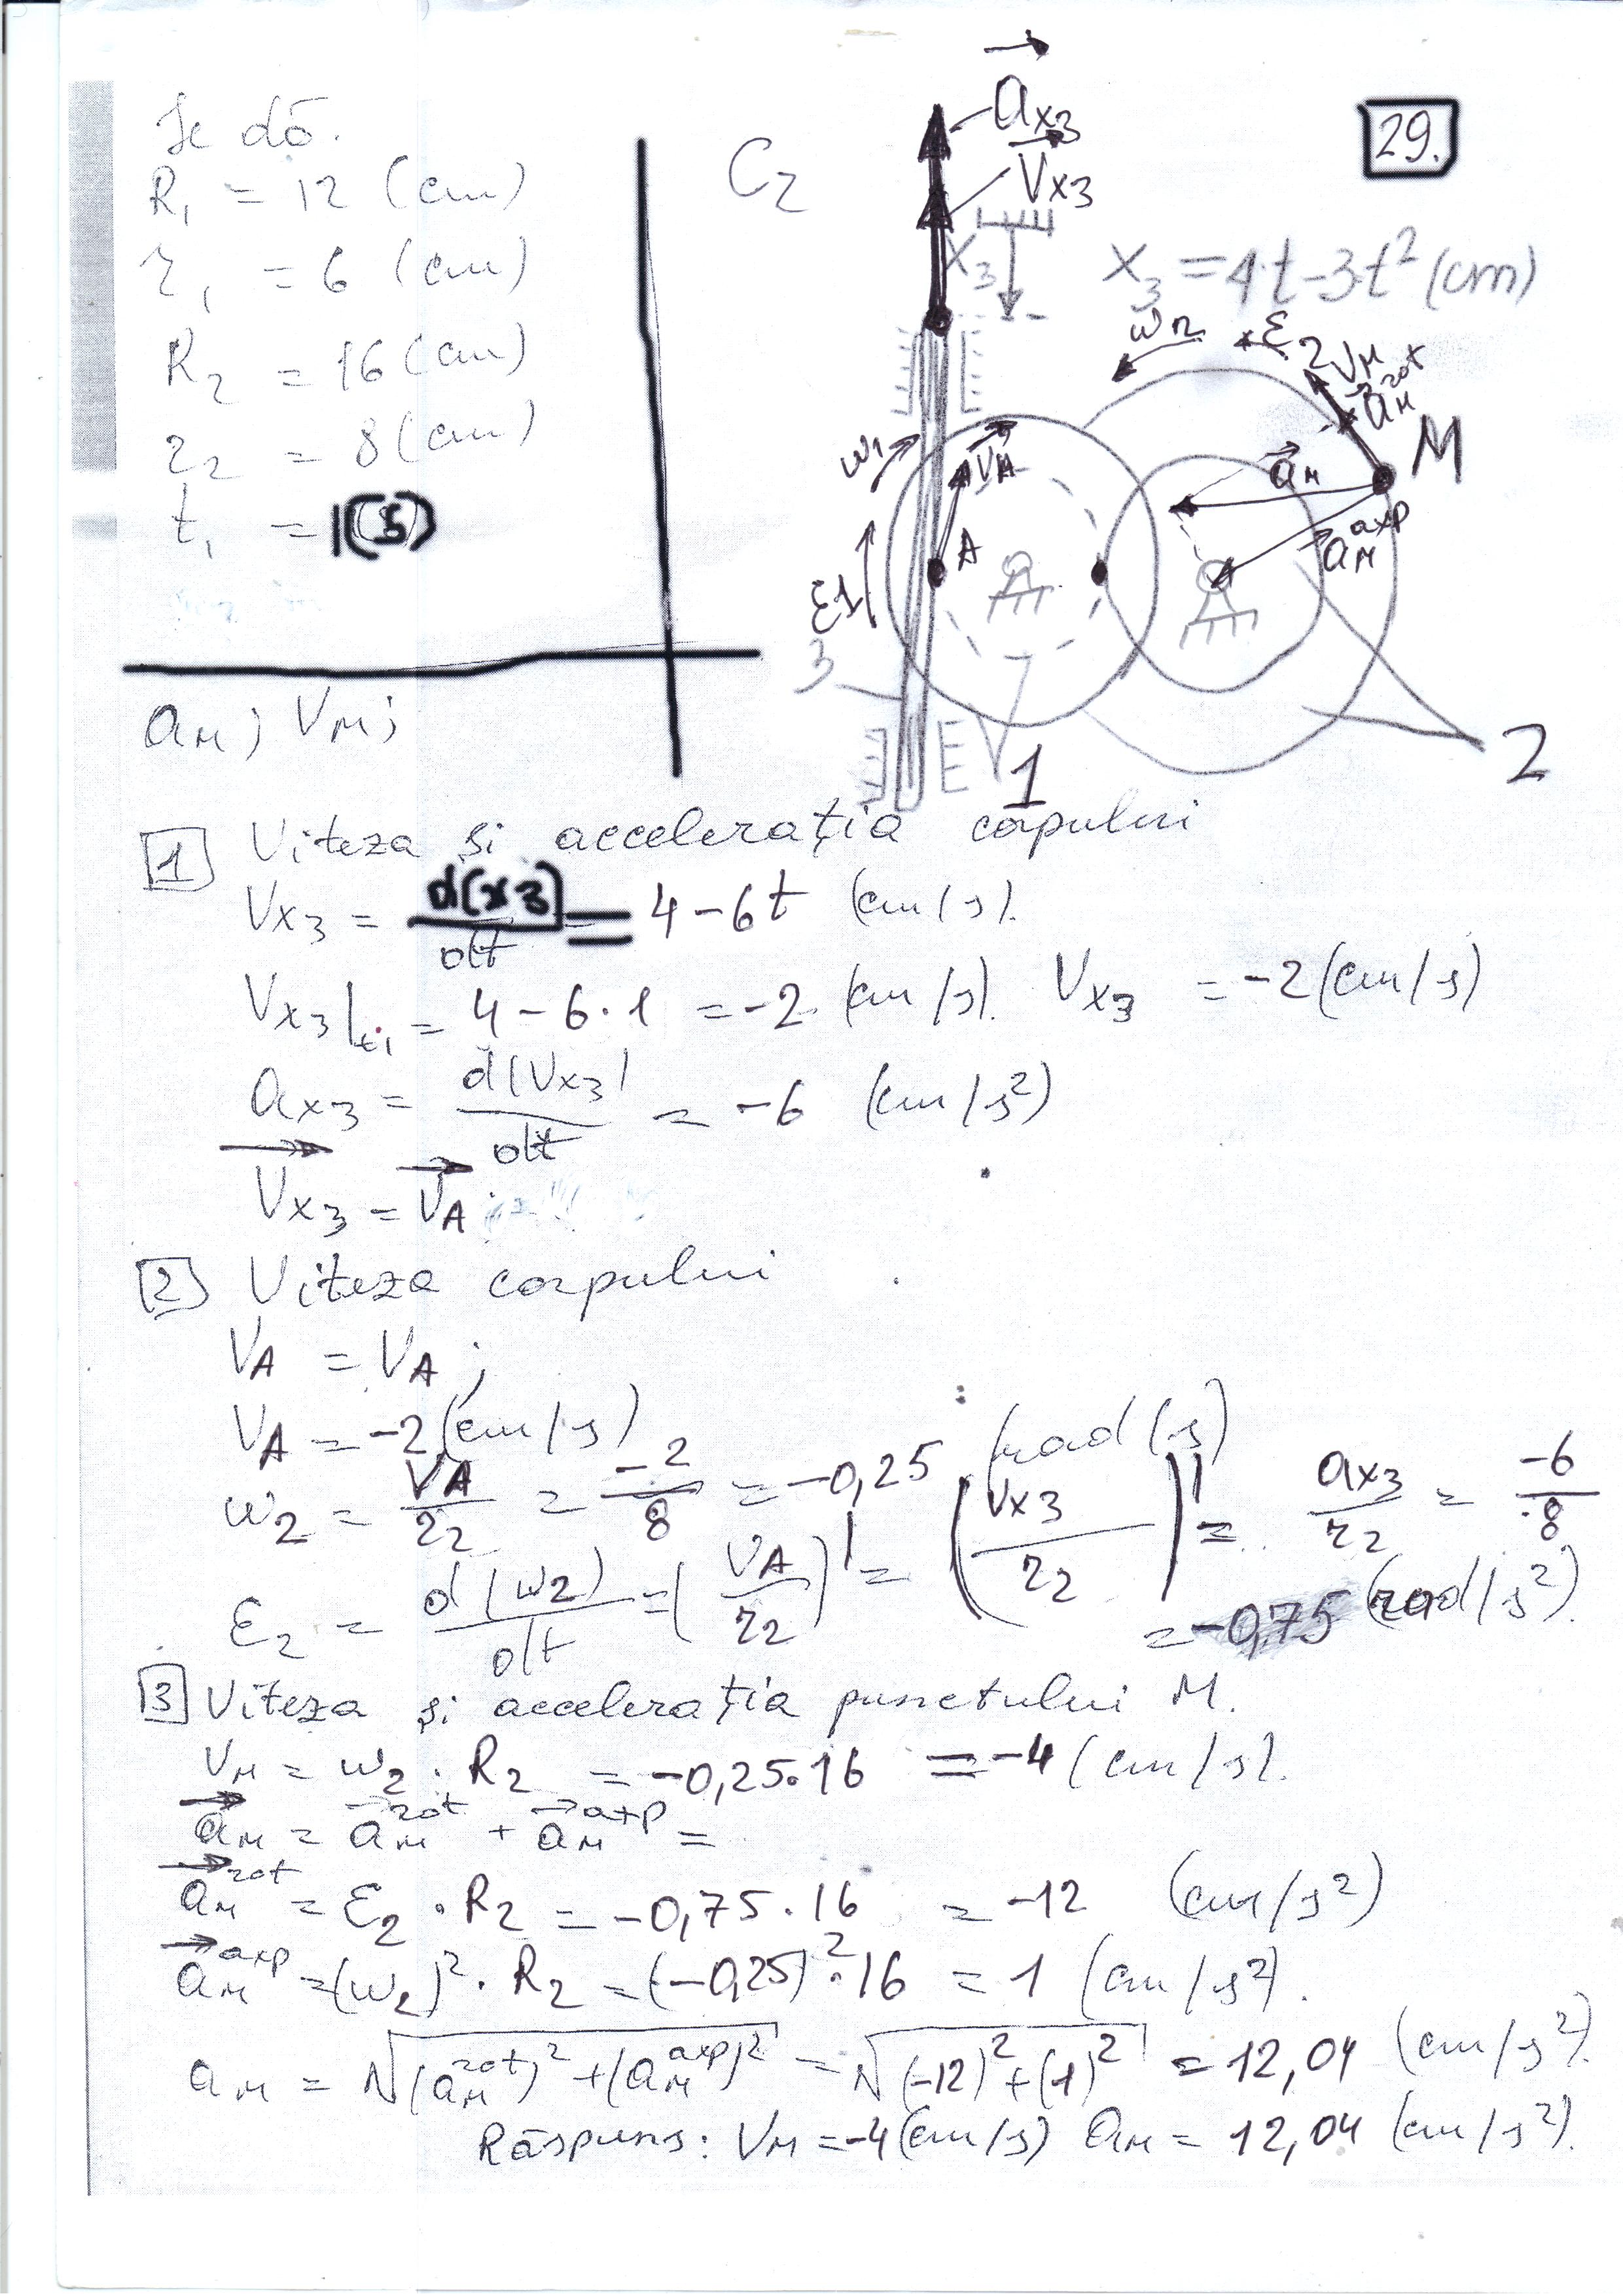 29.
Se dă.
R₁ = 12 (cm)
r₁ = 6 (cm)
R₂ = 16 (cm)
r₂ = 8 (cm)
t₁ = 1(s)
aм; Vм;
C2
ax3
Vx3
x3
x3 = 4·t-3·t² (cm)
ω2
ε2
Vм
aм rot
M
aм
aм axp
ω1
VA
A
ε1
3
1
2
1 Viteza și accelerația corpului
Vx3 = d(x3)/dt = 4-6t (cm/s).
Vx3|t₁ = 4-6·1 = -2 (cm/s). Vx3 = -2 (cm/s)
ax3 = d(Vx3)/dt = -6 (cm/s²)
Vx3 = VA
2 Viteza corpului
VA = VA;
VA = -2 (cm/s)
ω2 = VA/r2 = -2/8 = -0,25 (rad/s)
ε2 = d(ω2)/dt = (VA/r2)' = (Vx3/r2)' = ax3/r2 = -6/8
= -0,75 (rad/s²).
3 Viteza și accelerația punctului M.
Vм = ω2 · R2 = -0,25·16 = -4 (cm/s).
aм = aм rot + aм axp =
aм rot = ε2 · R2 = -0,75·16 = -12 (cm/s²)
aм axp = (ω2)² · R2 = (-0,25)²·16 = 1 (cm/s²).
aм = √(aм rot)² + (aм axp)² = √(-12)² + (1)² = 12,04 (cm/s²).
Răspuns: Vм = -4 (cm/s) aм = 12,04 (cm/s²).